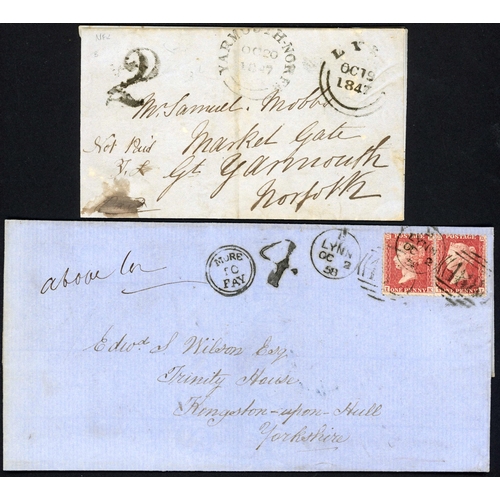 2
YARMOUTH-NORF
OC 20
1847
LYNN
OCT 9
1847
Mr Samuel Mobbs
Not Paid
Market Gate
Gt Yarmouth
Norfolk
above 1 oz
MORE
TO
PAY
LYNN
OC 2
58
POSTAGE
ONE PENNY
ONE PENNY
Edwd S. Wilson Esq
Trinity House
Kingston-upon-Hull
Yorkshire